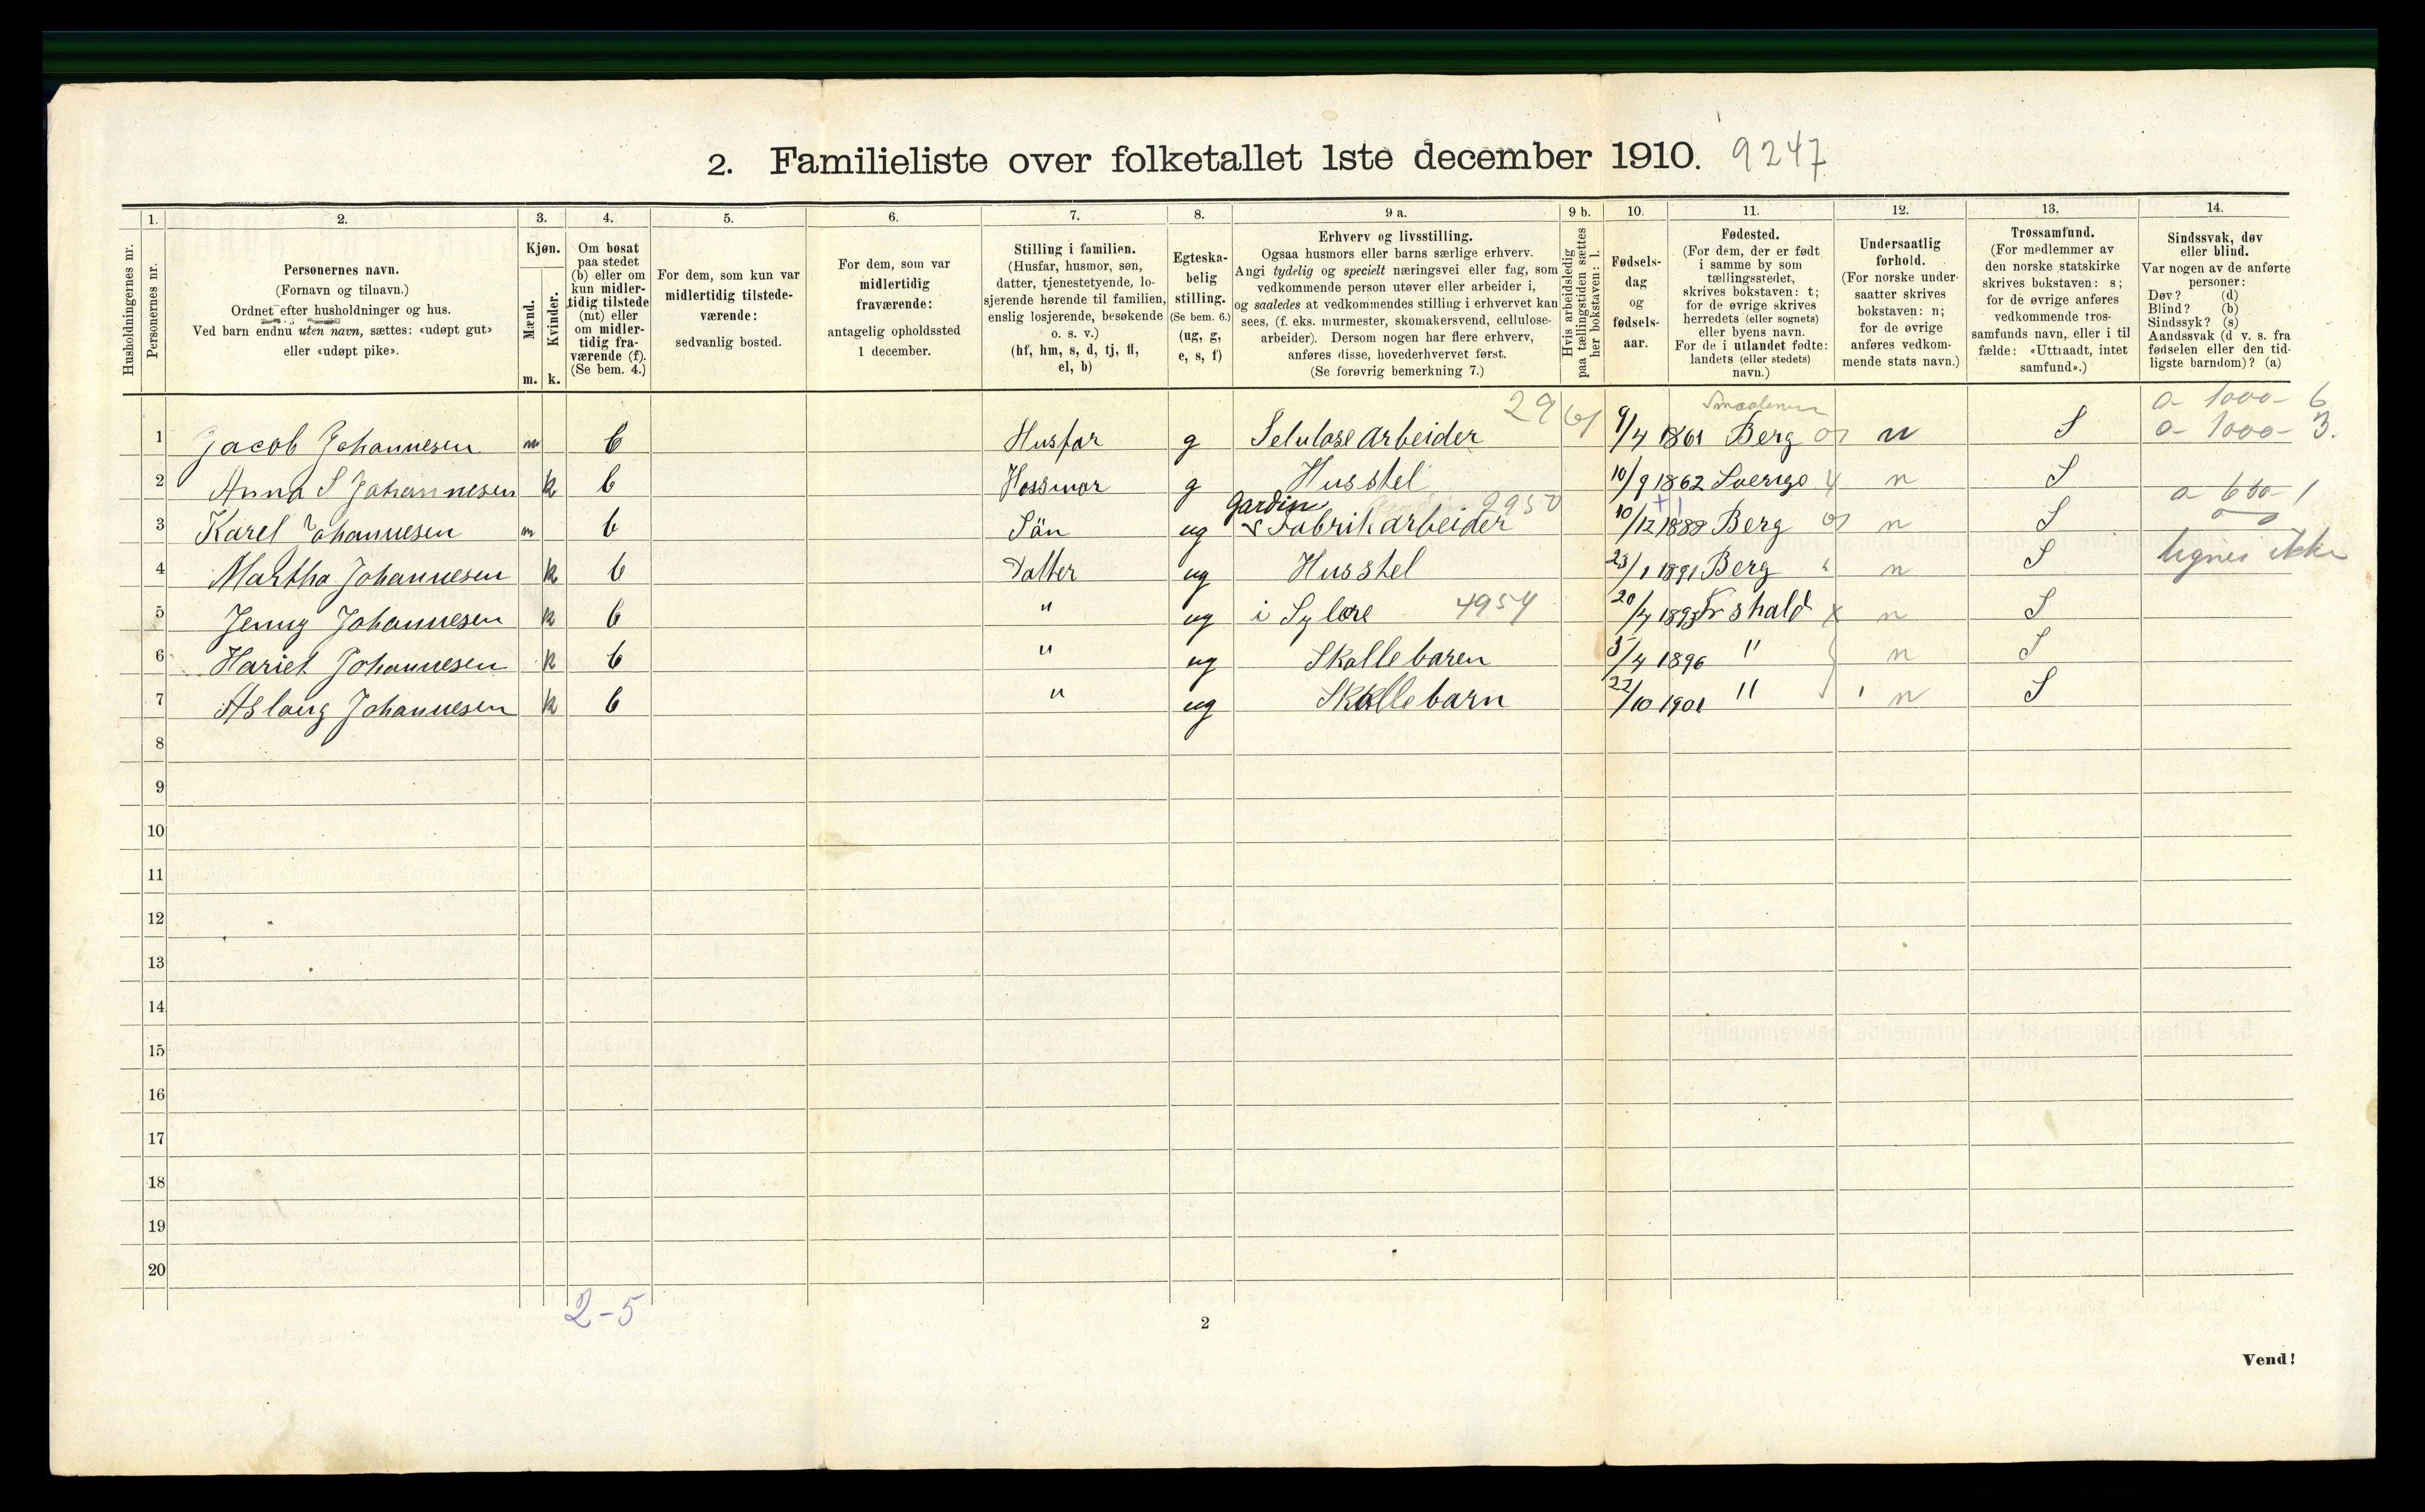 2. Familieliste over folketallet 1ste december 1910. 9247
Husholdningernes nr.
1.
Personernes nr.
2.
Personernes navn.
(Fornavn og tilnavn.)
Ordnet efter husholdninger og hus.
Ved barn endnu uten navn, sættes: «udøpt gut»
eller «udøpt pike».
3.
Kjøn.
Mænd.
Kvinder.
m. k.
4.
Om bosat
paa stedet
(b) eller om
kun midler-
tidig tilstede
(mt) eller
om midler-
tidig fra-
værende (f).
(Se bem. 4.)
5.
For dem, som kun var
midlertidig tilstede-
værende:
sedvanlig bosted.
6.
For dem, som var
midlertidig
fraværende:
antagelig opholdssted
1 december.
7.
Stilling i familien.
(Husfar, husmor, søn,
datter, tjenestetyende, lo-
sjerende hørende til familien,
enslig losjerende, besøkende
o. s. v.)
(hf, hm, s, d, tj, fl,
el, b)
8.
Egteska-
belig
stilling.
(Se bem. 6.)
(ug, g,
e, s, f)
9 a.
Erhverv og livsstilling.
Ogsaa husmors eller barns særlige erhverv.
Angi tydelig og specielt næringsvei eller fag, som
vedkommende person utøver eller arbeider i,
og saaledes at vedkommendes stilling i erhvervet kan
sees, (f. eks. murmester, skomakersvend, cellulose-
arbeider). Dersom nogen har flere erhverv,
anføres disse, hovederhvervet først.
(Se forøvrig bemerkning 7.)
9 b.
Hvis arbeidsledig
paa tællingstiden sættes
her bokstaven: l.
10.
Fødsels-
dag
og
fødsels-
aar.
11.
Fødested.
(For dem, der er født
i samme by som
tællingsstedet,
skrives bokstaven: t;
for de øvrige skrives
herredets (eller sognets)
eller byens navn.
For de i utlandet fødte:
landets (eller stedets)
navn.)
12.
Undersaatlig
forhold.
(For norske under-
saatter skrives
bokstaven: n;
for de øvrige
anføres vedkom-
mende stats navn.)
13.
Trossamfund.
(For medlemmer av
den norske statskirke
skrives bokstaven: s;
for de øvrige anføres
vedkommende tros-
samfunds navn, eller i til
fælde: «Uttraadt, intet
samfund».)
14.
Sindssvak, døv
eller blind.
Var nogen av de anførte
personer:
Døv? (d)
Blind? (b)
Sindssyk? (s)
Aandssvak (d v. s. fra
fødselen eller den tid-
ligste barndom)? (a)
29 Smaalenene a 1000- 6
1 Jacob Johannesen m b Husfar g Selulose arbeider 9/4 1861 Berg n S a 1000- 3.
2 Anna S Johannesen k b Hossmor g Husstel 10/9 1862 Sverige n S
Gardin 9950 a 600- 1
3 Karel Johannesen m b Sön ug Fabrikarbeider 10/12 1888 Berg n S
4 Martha Johannesen k b Datter ug Husstel 23/1 1891 Berg n S lignes ikke
5 Jenny Johannesen k b " ug i Sylære 4954 20/4 1893 Frshald x n S
6 Hariet Johannesen k b " ug Skollebaren 5/4 1896 " n S
7 Aslaug Johannesen k b " ug Skollebarn 22/10 1901 " n S
8
9
10
11
12
13
14
15
16
17
18
19
20
2-5
2
Vend!